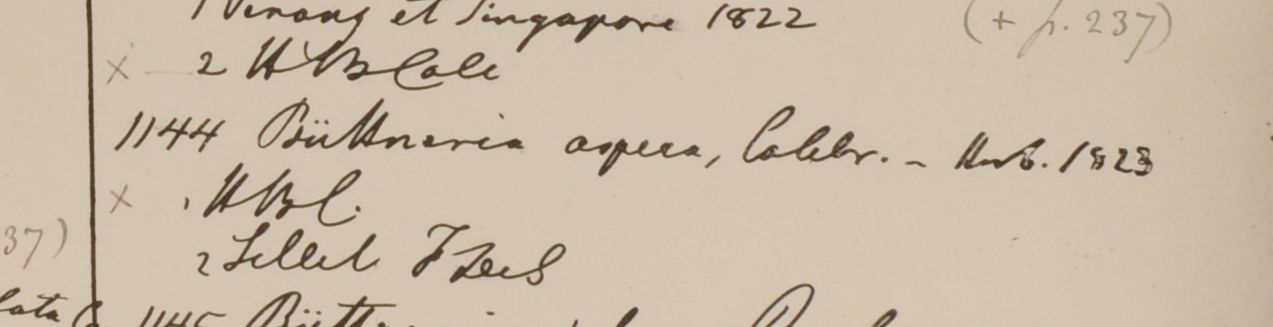 Penang et Singapore 1822 (+ p. 237)
× 2 HB Calc
1144 Büttneria aspera, Colebr. - Herb. 1823
× 1 HBC.
2 Sillet F
37)
lata
1145 Bütt